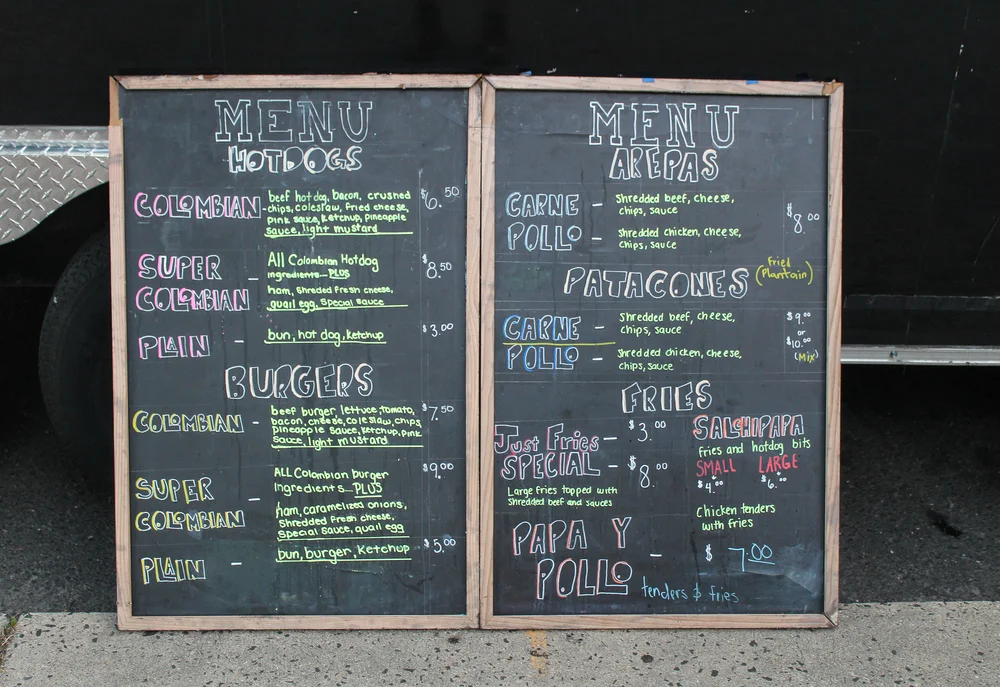 MENU
HOTDOGS
COLOMBIAN - beef hot dog, bacon, crushed $6.50
chips, coleslaw, fried cheese,
pink sauce, ketchup, pineapple
sauce, light mustard
SUPER COLOMBIAN - All Colombian Hotdog $8.50
ingredients... PLUS
ham, Shreded fresh cheese,
quail egg, Special sauce
PLAIN - bun, hot dog, ketchup $3.00
BURGERS
COLOMBIAN - beef burger, lettuce, tomato, $7.50
bacon, cheese, coleslaw, chips,
pineapple sauce, ketchup, pink
sauce, light mustard
SUPER COLOMBIAN - ALL Colombian burger $9.00
Ingredients... PLUS
ham, caramelized onions,
Shredded fresh cheese,
Special Sauce, quail egg
PLAIN - bun, burger, Ketchup $5.00
MENU
AREPAS
CARNE - Shredded beef, cheese,
chips, sauce
$8.00
POLLO - shredded chicken, cheese,
chips, sauce
PATACONES (Fried Plantain)
CARNE - Shredded beef, cheese, $9.00
chips, sauce
or
$10.00
(Mix)
POLLO - Shredded chicken, cheese,
chips, sauce
FRIES
Just Fries - $3.00
SPECIAL - $8.00
Large fries topped with
Shredded beef and sauces
SALCHIPAPA
fries and hotdog bits
SMALL LARGE
$4.00 $6.00
Chicken tenders
with fries
PAPA Y
POLLO - $7.00
tenders & fries